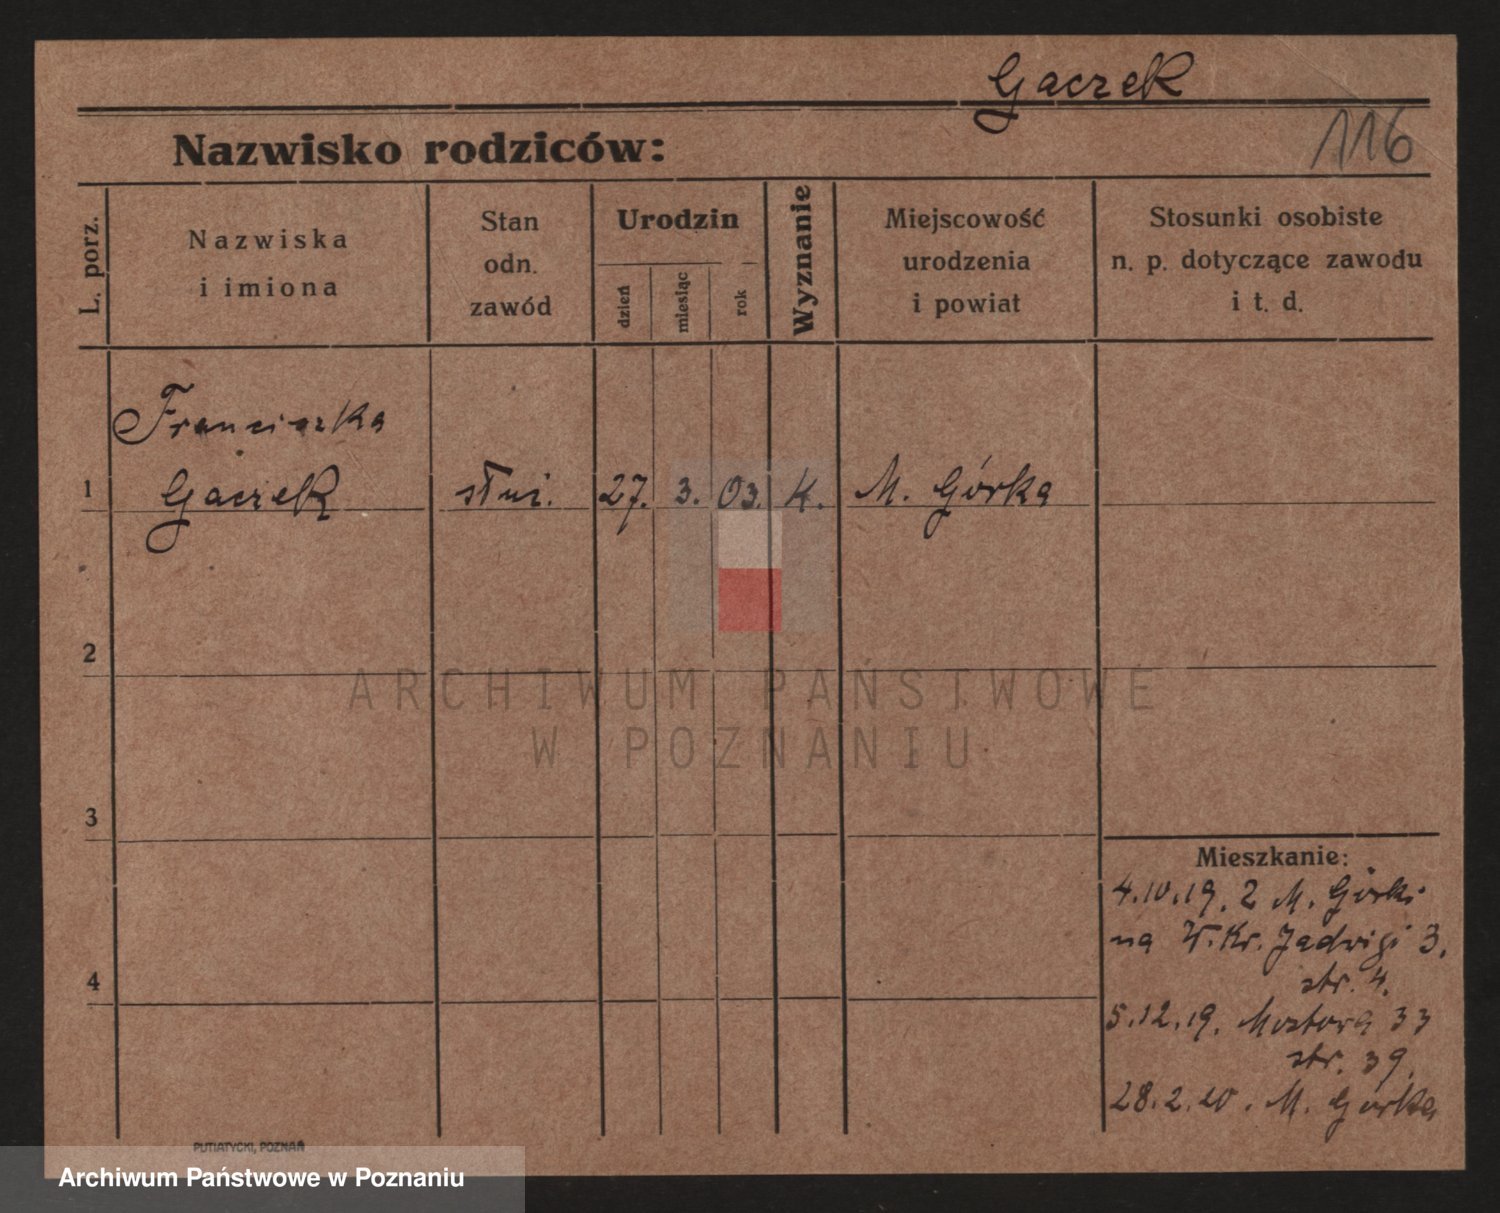 Gaczek
116
Nazwisko rodziców:
L. porz.
Nazwiska
i imiona
Stan
odn.
zawód
Urodzin
dzień
miesiąc
rok
Wyznanie
Miejscowość
urodzenia
i powiat
Stosunki osobiste
n. p. dotyczące zawodu
i t. d.
Franciszka
1 Gaczek służ. 27. 3. 03. K. M. Górka
2
ARCHIWUM PAŃSTWOWE
W POZNANIU
3
Mieszkanie:
4.10.19. z M. Górki
na W. Kr. Jadwigi 3.
str. 4.
4
5.12.19. Mostowa 33
str. 39.
28.2.20. M. Górka
PUTIATYCKI, POZNAŃ
Archiwum Państwowe w Poznaniu